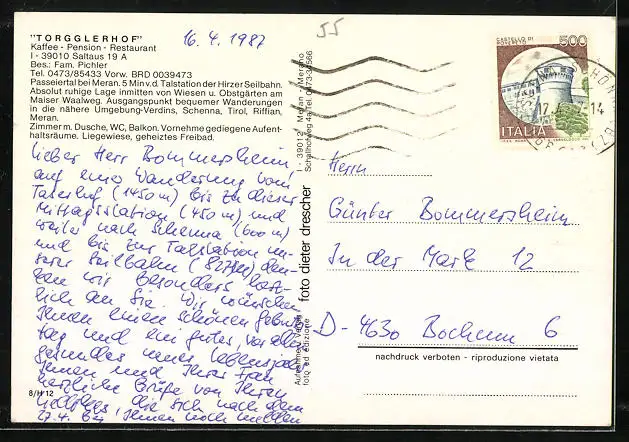 16.4.1987
55
"TORGGLERHOF"
Kaffee - Pension - Restaurant
I - 39010 Saltaus 19 A
Bes.: Fam. Pichler
Tel. 0473/85433 Vorw. BRD 0039473
Passeiertal bei Meran. 5 Min v. d. Talstation der Hirzer Seilbahn.
Absolut ruhige Lage inmitten von Wiesen u. Obstgärten am
Maiser Waalweg. Ausgangspunkt bequemer Wanderungen
in die nähere Umgebung-Verdins, Schenna, Tirol, Riffian,
Meran.
Zimmer m. Dusche, WC, Balkon. Vornehme gediegene Aufent-
haltsräume. Liegewiese, geheiztes Freibad.
Lieber Herr Bommersheim,
auf einer Wanderung vom
Taserhof (1450 m) bis zu dieser
Mittagsstation (450 m) und
weiter nach Schenna (600 m)
und bis zur Talstation un-
serer Seilbahn (827m) den-
ken wir besonders herz-
lich an Sie. Wir wünschen
Ihnen einen schönen Geburts-
tag und ein gutes, vor allem
gesundes neues Lebensjahr
Ihnen und Ihrer Frau
herzliche Grüße von Ihren
die sich nach dem
27.4. bei Ihnen noch melden
8/H 12
I - 39012 Meran - Merano
foto dieter drescher
CASTELLO DI
500
ITALIA
17.4.
14
Herrn
Günter Bommersheim
In der Mark 12
D-4630 Bochum 6
nachdruck verboten - riproduzione vietata